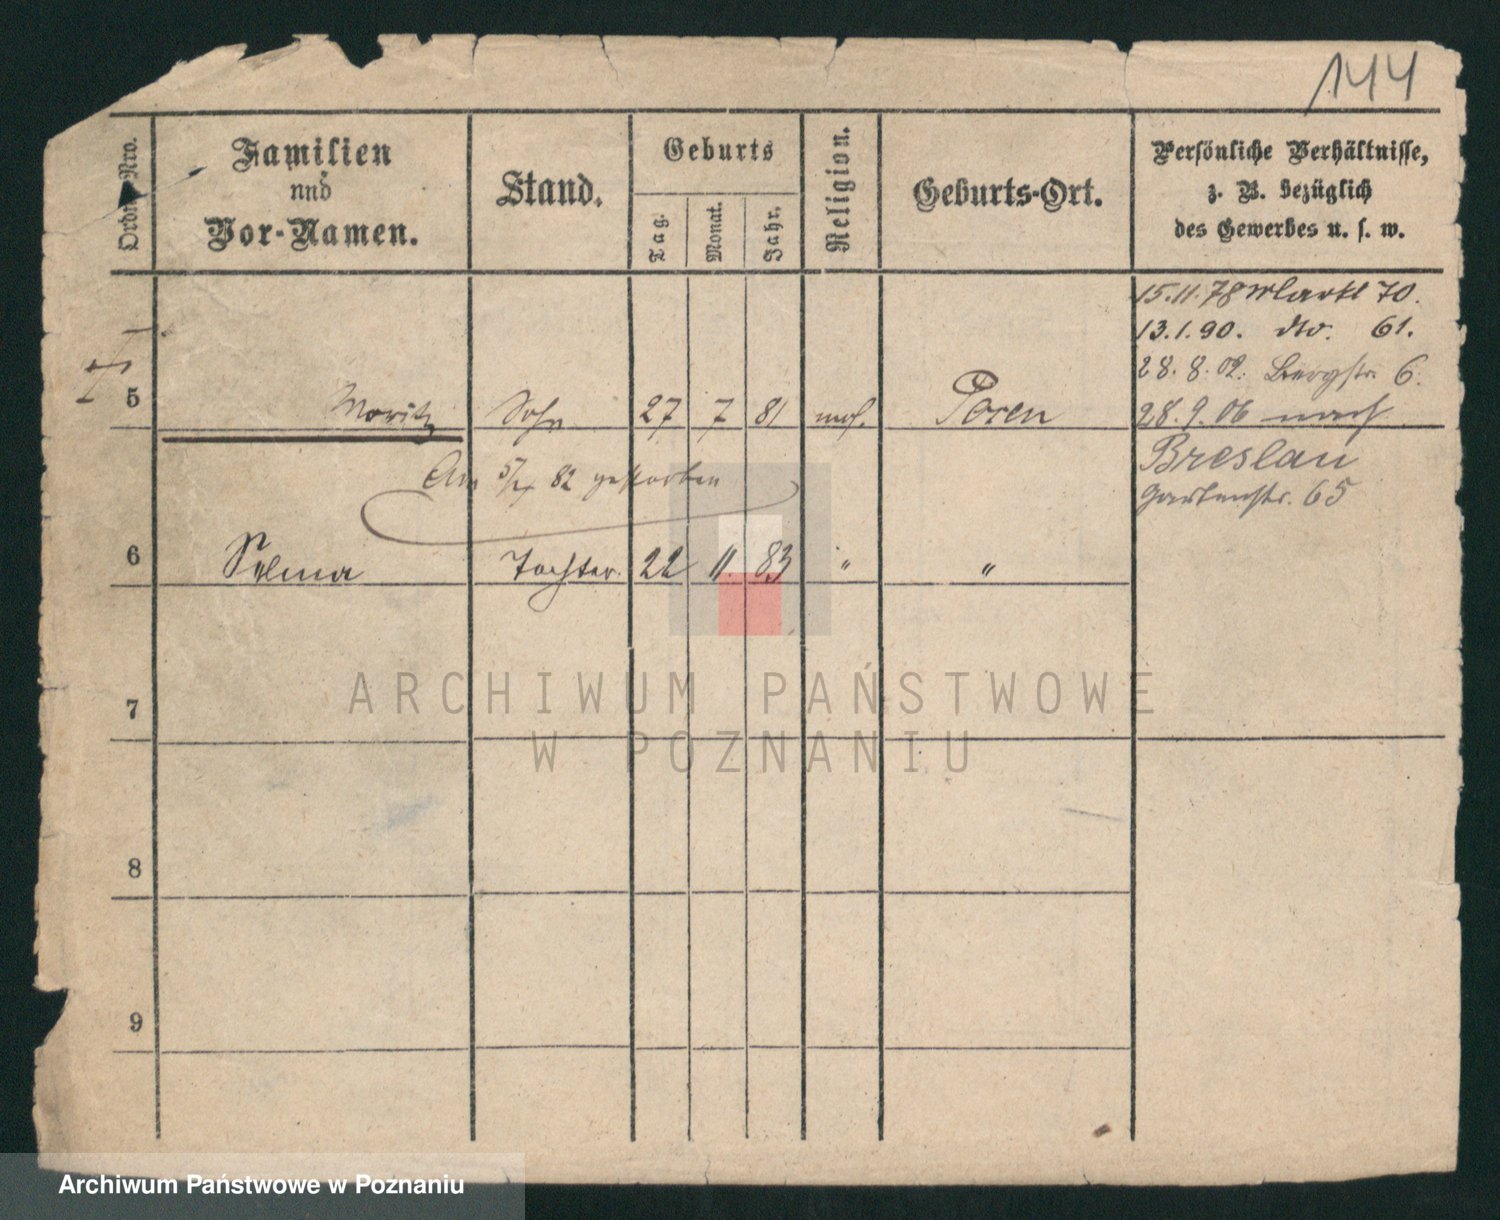 144
Ordn. Nro.
Familien
und
Vor-Namen.
Stand.
Geburts
Tag.
Monat.
Jahr.
Religion.
Geburts-Ort.
Persönliche Verhältnisse,
z. B. bezüglich
des Gewerbes u. s. w.
15.11.78 Markt 70.
13.1.90. dto. 61.
28.8.02. Bergstr. 6.
5 Moritz Sohn 27 7 81 mos. Posen 28.9.06 nach
Breslau
Am 5/ 82 gestorben
Gartenstr. 65
6 Selma Tochter 22 11 83 " "
7
8
9
ARCHIWUM PAŃSTWOWE
W POZNANIU
Archiwum Państwowe w Poznaniu